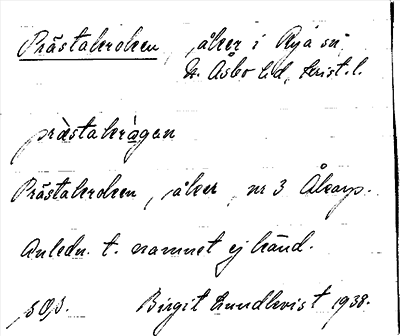 Prästakroken, åker i Rya sn
N. Åsbo hd, Krist. l.
præstakrågan
Prästakroken, åker, nr 3 Åkarp.
Anledn. t. namnet ej känd.
sOp. Birgit Lundkvist 1938.